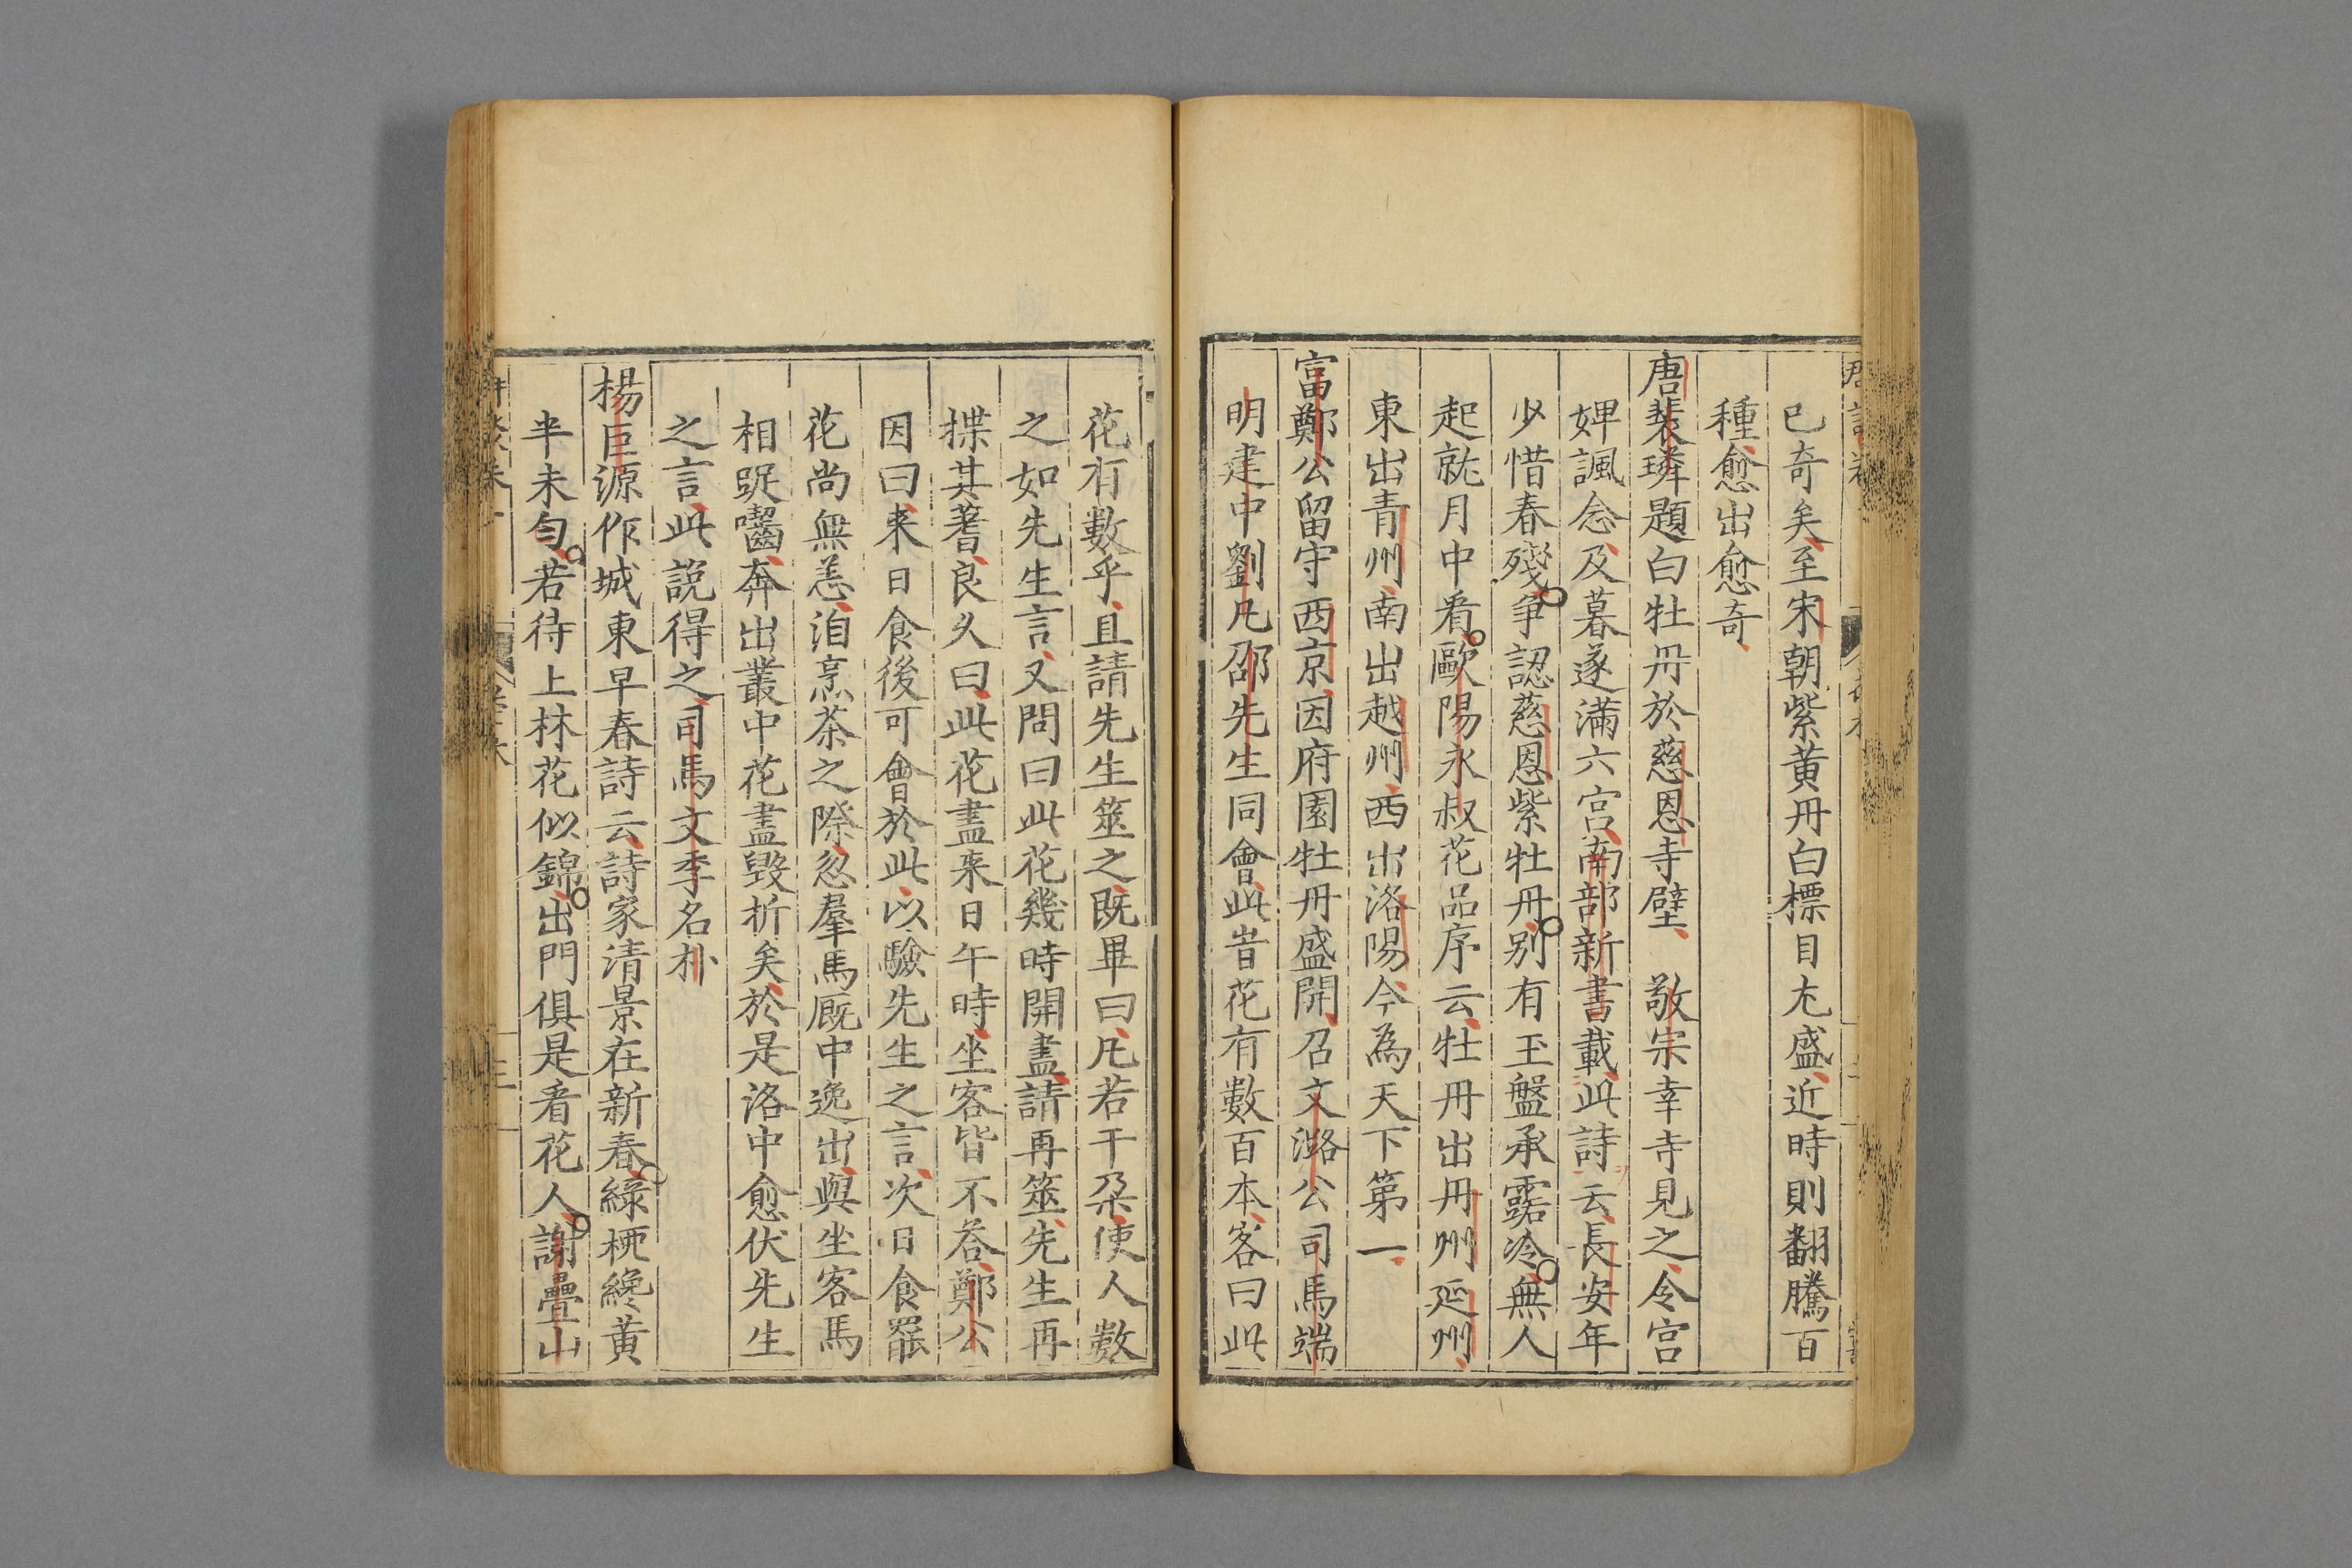 已奇矣至宋朝紫黃丹白標目尢盛近時則翻騰百
種愈出愈奇
唐裴璘題白牡丹於慈恩寺壁 敬宗幸寺見之令宮
婢諷念及暮遂滿六宮南部新書載此詩云長安年
少惜春殘爭認慈恩紫牡丹別有玉盤承露冷無人
起就月中看歐陽永叔花品序云牡丹出丹州延州
東出青州南出越州西出洛陽今為天下第一
富鄭公留守西京因府園牡丹盛開召文潞公司馬端
明建中劉凡邵先生同會此旹花有數百本客曰此
花有數乎且請先生筮之既畢曰凡若干朶使人數
之如先生言又問曰此花幾時開盡請再筮先生再
揲其蓍良久曰此花盡来日午時坐客皆不荅鄭公
因曰来日食後可會於此以驗先生之言次日食罷
花尚無恙洎烹茶之際忽羣馬厩中逸出與坐客馬
相踶囓奔出叢中花盡毀折矣於是洛中愈伏先生
之言此說得之司馬文季名朴
楊巨源作城東早春詩云詩家清景在新春綠栁纔黃
半未勻若待上林花似錦出門俱是看花人謝疊山